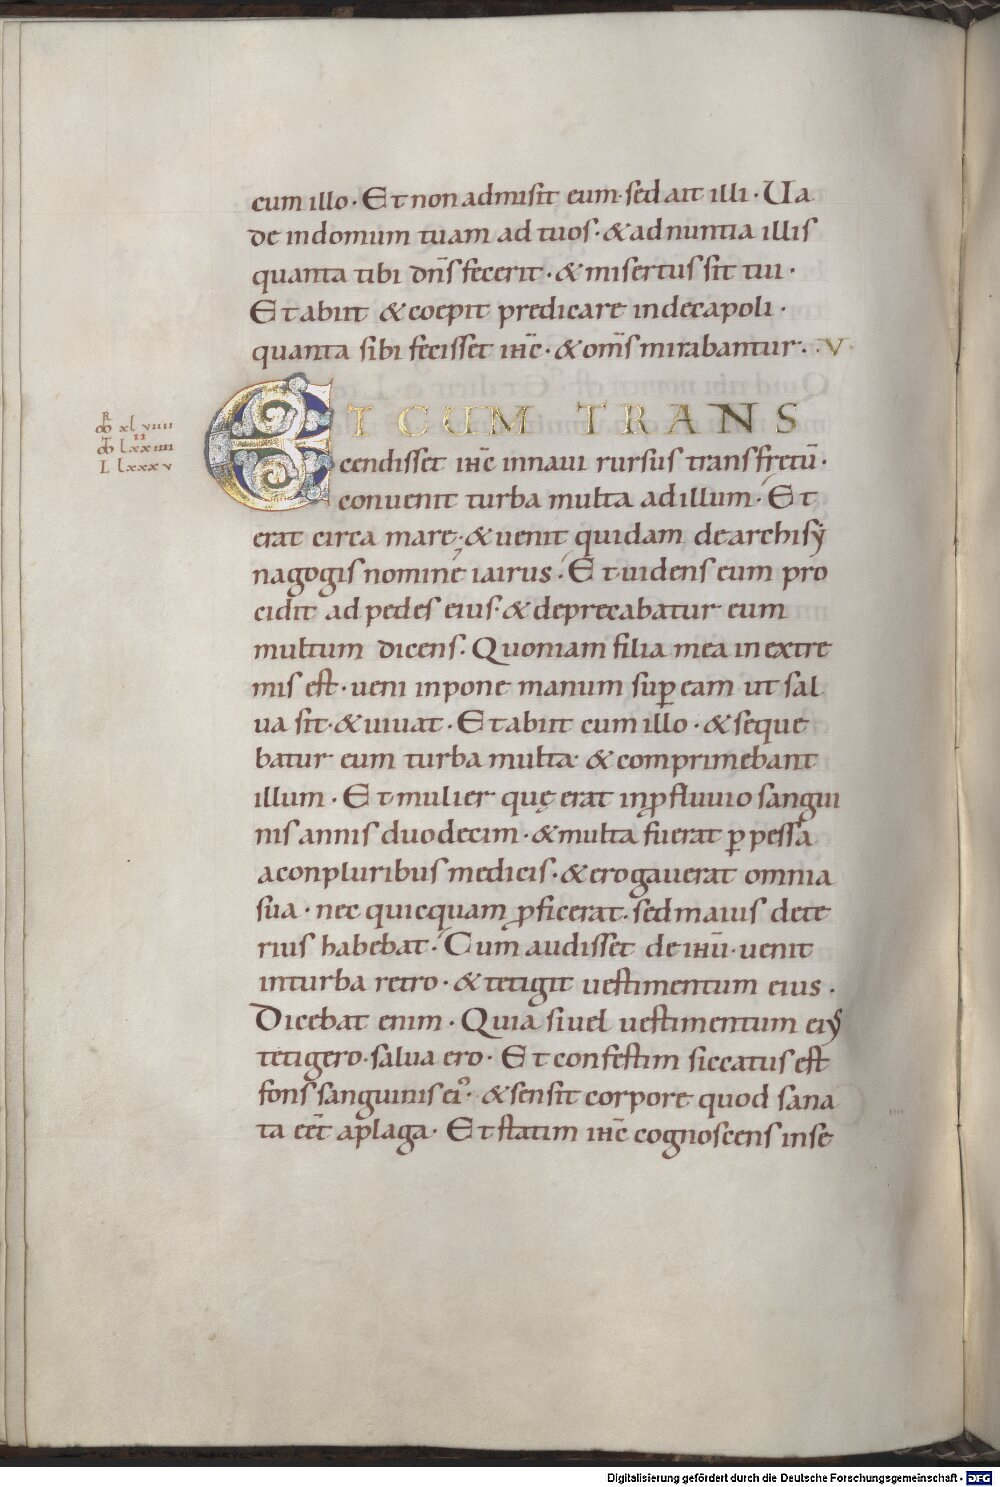 cum illo · Et non admisit eum · sed ait illi · Ua
de in domum tuam ad tuos · & adnuntia illis
quanta tibi dn̄s fecerit · & misertus sit tui ·
Et abiit & coepit predicare in decapoli ·
quanta sibi fecisset ih̄c · & om̄s mirabantur · . V
ET CUM TRANS
R
xl viiii
cendisset ih̄c in naui rursus trans fretū ·
T II
lxxiiii
L lxxxv
conuenit turba multa ad illum · Et
erat circa mare · & uenit quidam de archisy
nagogis nomine iairus · Et uidens eum pro
cidit ad pedes eius · & deprecabatur eum
multum dicens · Quoniam filia mea in extre
mis est · ueni inpone manum sup̄ eam ut sal
ua sit · & uiuat · Et abiit cum illo · & seque
batur eum turba multa & comprimebant
illum · Et mulier quę erat in ꝓfluuio sangui
nis annis duodecim · & multa fuerat ꝑpessa
a conpluribus medicis · & erogauerat omnia
sua · nec quicquam ꝓficerat · sed maius dete
rius habebat · Cum audisset de ih̄u · uenit
in turba retro · & tetigit uestimentum eius ·
Dicebat enim · Quia si uel uestimentum eiꝰ
tetigero · salua ero · Et confestim siccatus est
fons sanguinis eiꝰ · & sensit corpore quod sana
ta eēt a plaga · Et statim ih̄c cognoscens in se
Digitalisierung gefördert durch die Deutsche Forschungsgemeinschaft - DFG